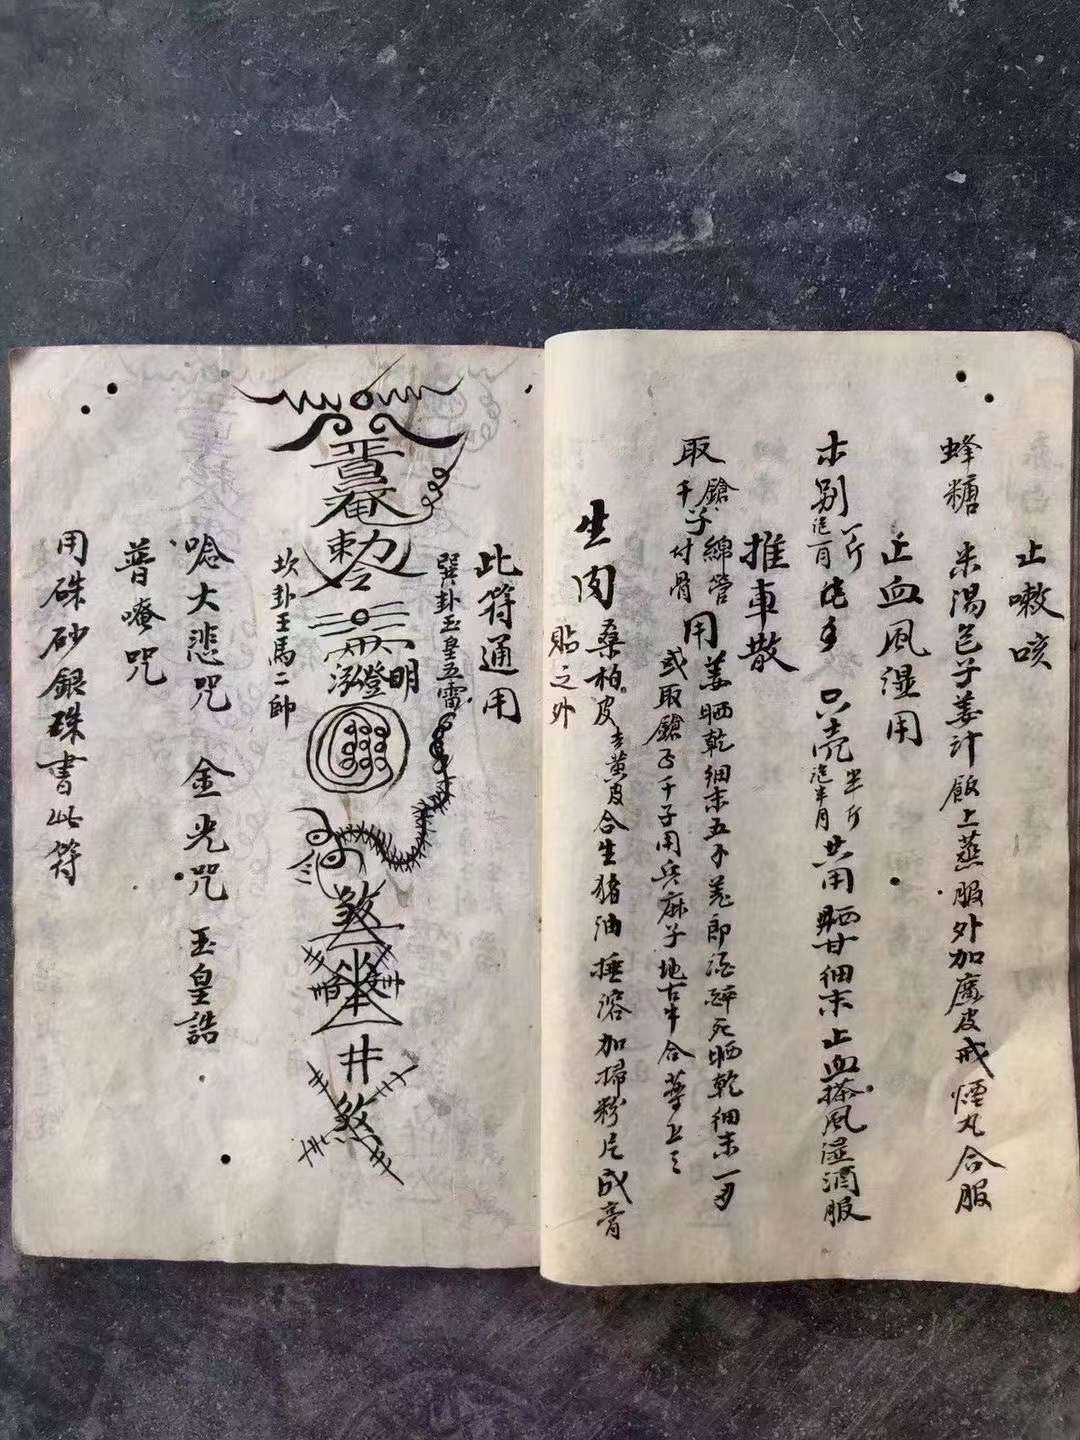 止嗽咳
蜂糖 米湯 子姜汁飯上蒸服外加 皮戒煙丸合服
止血風湿用
木别一斤 只壳半斤 共用晒甘細末止血搽風湿酒服
推車散
用姜晒乾細末五 羗郎酒醉死晒乾細末一
取鎗子綿營
千子付骨
或取鎗子千子用 麻子地古牛合 上之
生肉
桑柏皮去黄皮合生猪油捶溶加掃粉片成膏
貼之外
此符通用
巽卦玉皇五雷
普奄
勅令
泓澄明
煞
井
煞
坎卦王馬二帥
唸大悲咒 金光咒 玉皇誥
普唵咒
用硃砂銀硃書此符